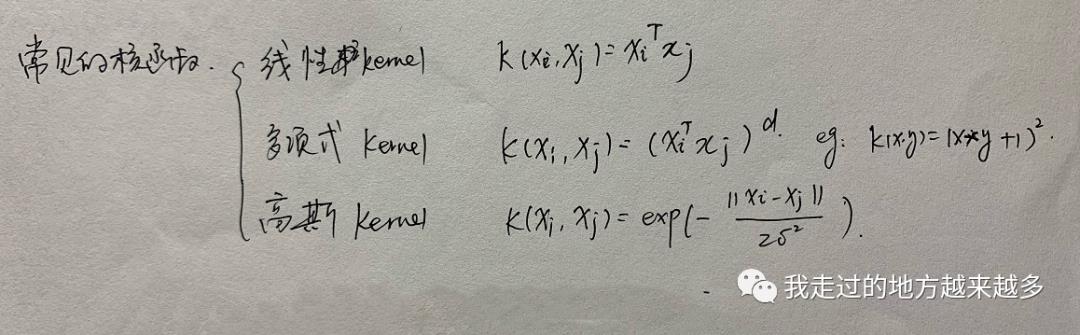 常见的核函数. { 线性kernel k(xi,xj)=xiᵀxj
多项式 kernel k(xi,xj)=(xiᵀxj)ᵈ. eg: k(x,y)=(x*y+1)².
高斯 kernel k(xi,xj)=exp(-||xi-xj||/2δ²).
我走过的地方越来越多